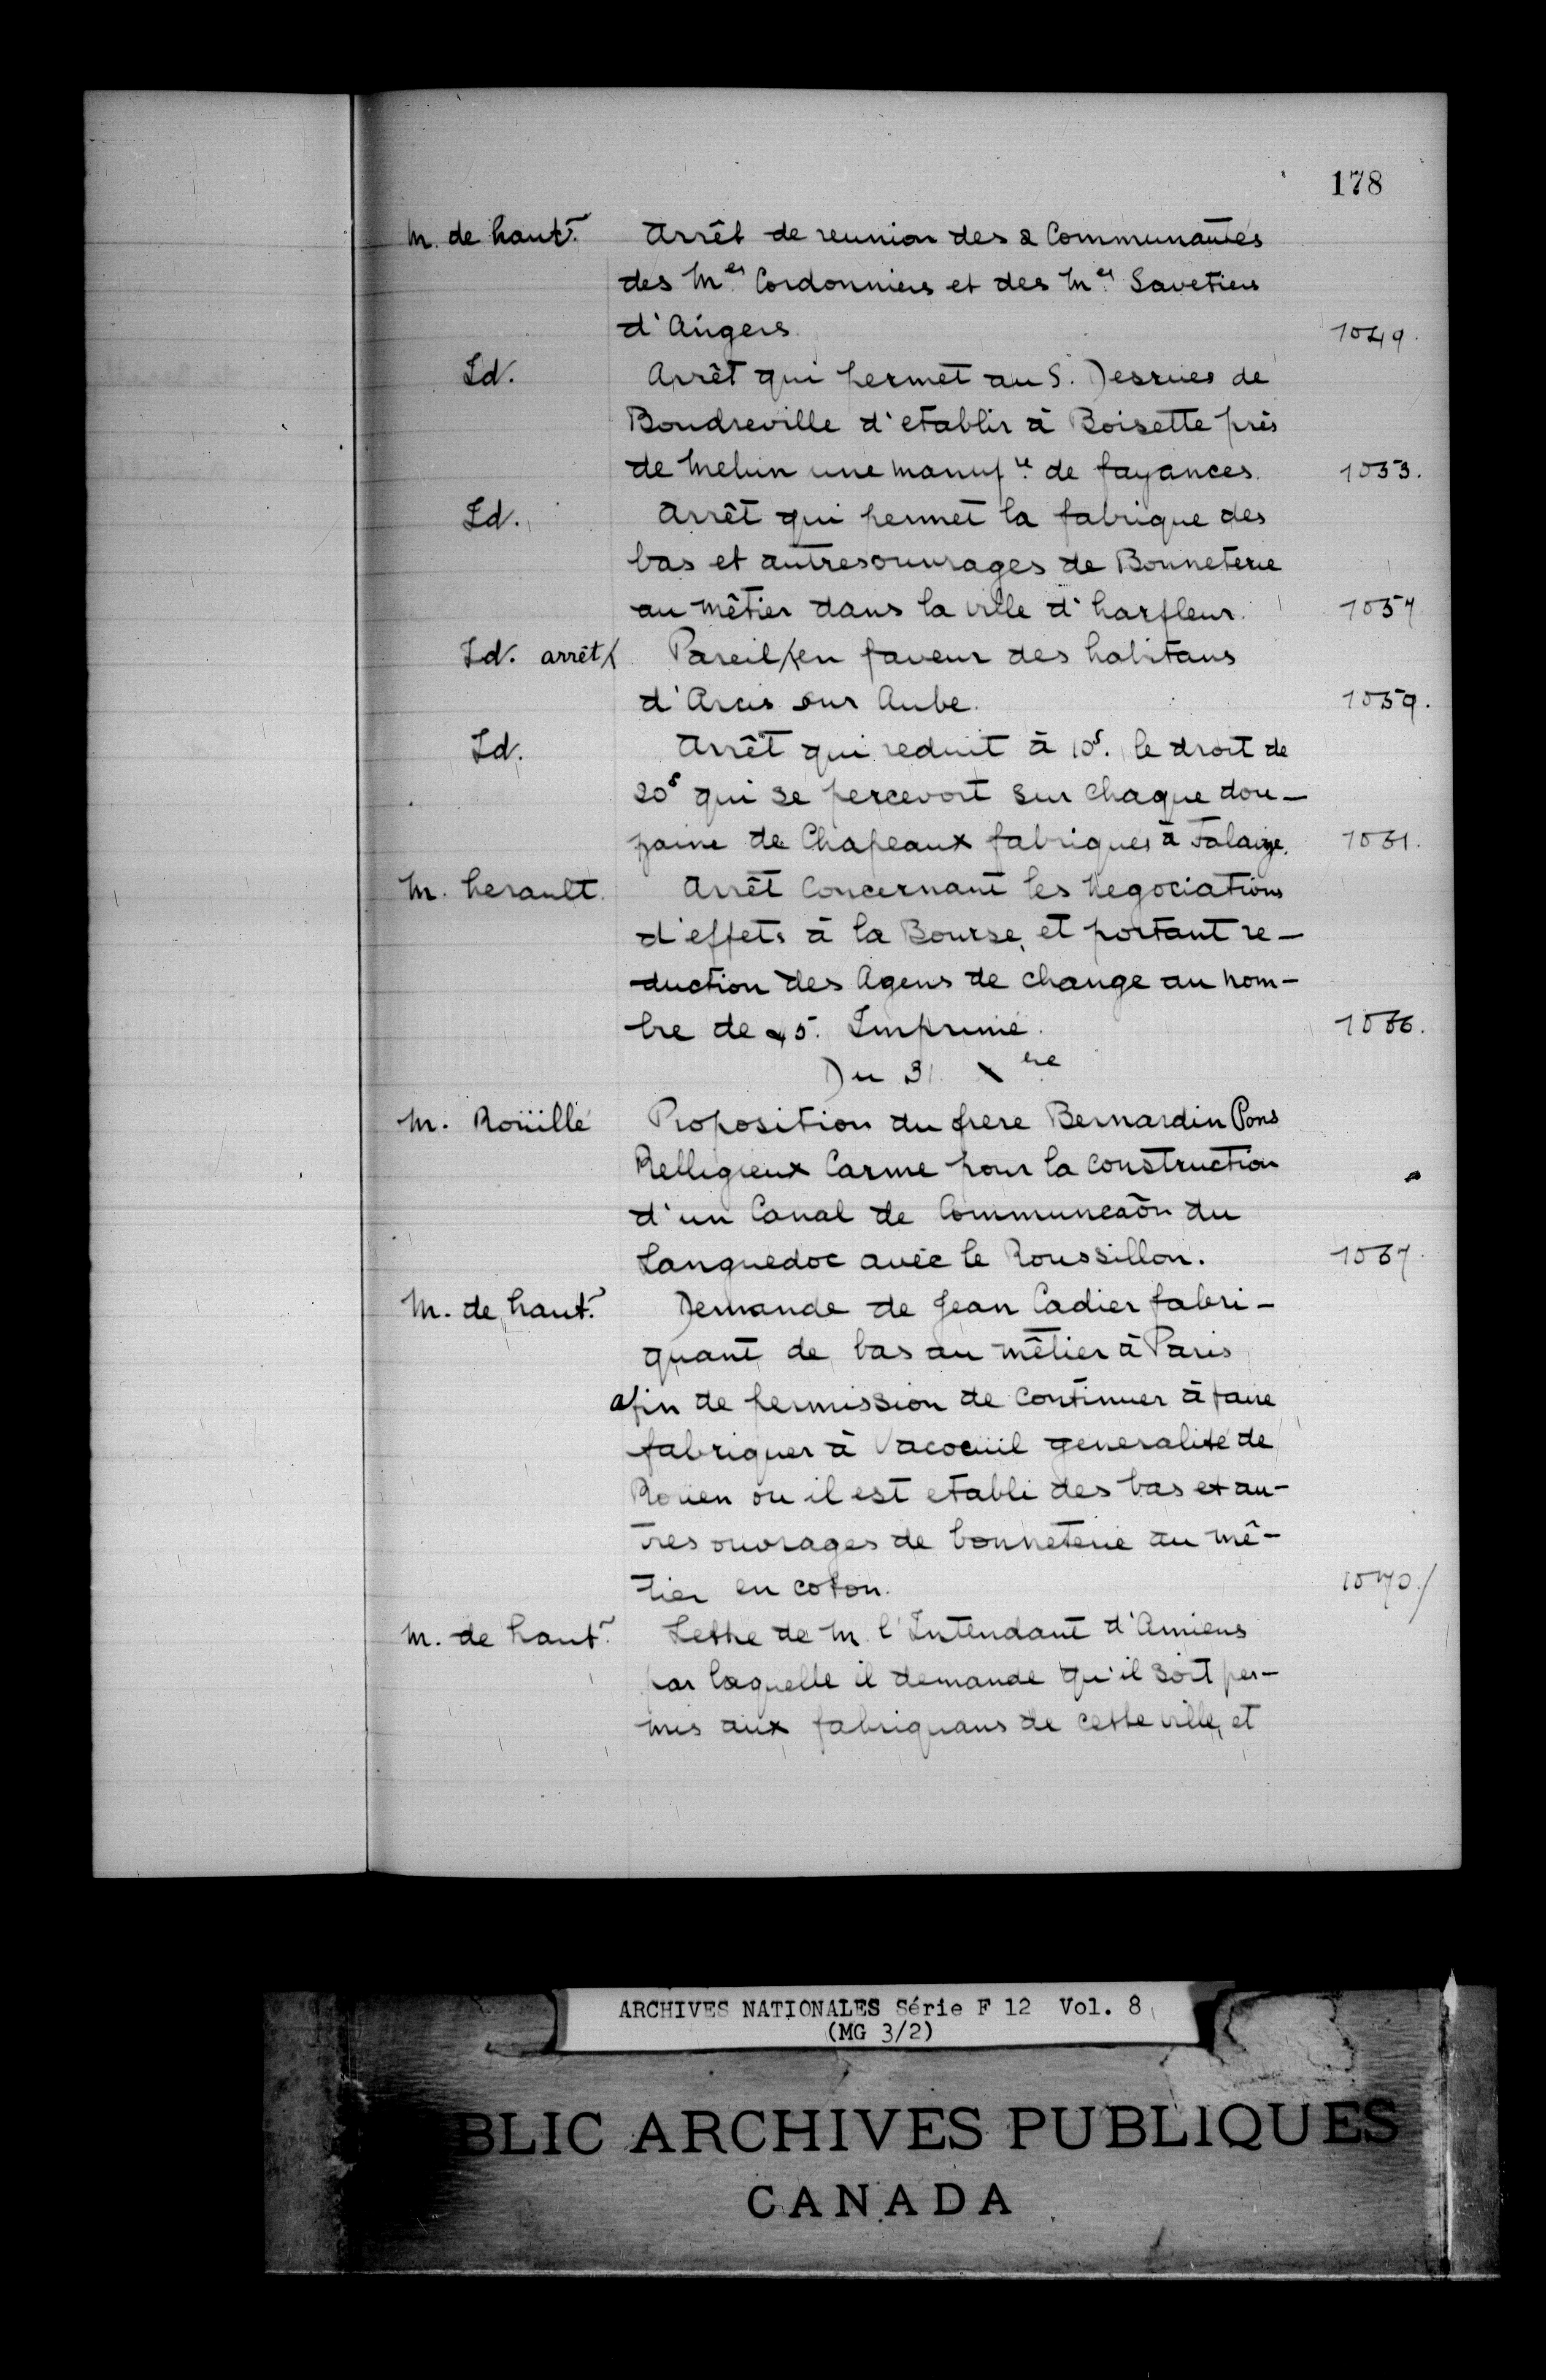 178
M. de haut.r Arrêt de reunion des 2 Communautés
des M.es Cordonniers et des M.es Savetiers
d'Angers. 1049.
Id. Arrêt qui permet au S. Desrues de
Boudreville d'etablir à Boisette près
de Melun une manuf.re de fayances. 1053.
Id. Arrêt qui permet la fabrique des
bas et autres ouvrages de Bonneterie
au mêtier dans la ville d'harfleur. 1057
Id. arrêt/ Pareil/en faveur des habitans
d'Arcis sur Aube. 1059.
Id. Arrêt qui reduit à 10s. le droit de
20s qui se percevoit sur chaque dou-
zaine de Chapeaux fabriqués à Falaize. 1061.
M. herault. Arrêt Concernant les Negociations
d'effets à la Bourse, et portant re-
duction des Agens de change au nom-
bre de 45. Imprimé. 1066.
Du 31. Xbre
M. Roüillé Proposition du frere Bernardin Pons
Relligieux Carme pour la construction
d'un Canal de Communicaõn du
Languedoc avec le Roussillon. 1067.
M. de haut.r Demande de Jean Cadier fabri-
quant de bas au mêtier à Paris
afin de permission de continuer à faire
fabriquer à Vacoeuil generalité de
Rouen ou il est etabli des bas et au-
tres ouvrages de bonneterie au mê-
tier en coton. 1070./
M. de haut.r Lettre de M. l'Intendant d'Amiens
par laquelle il demande qu'il soit per-
mis aux fabriquans de cette ville, et
ARCHIVES NATIONALES Série F 12 Vol. 8
(MG 3/2)
BLIC ARCHIVES PUBLIQUES
CANADA